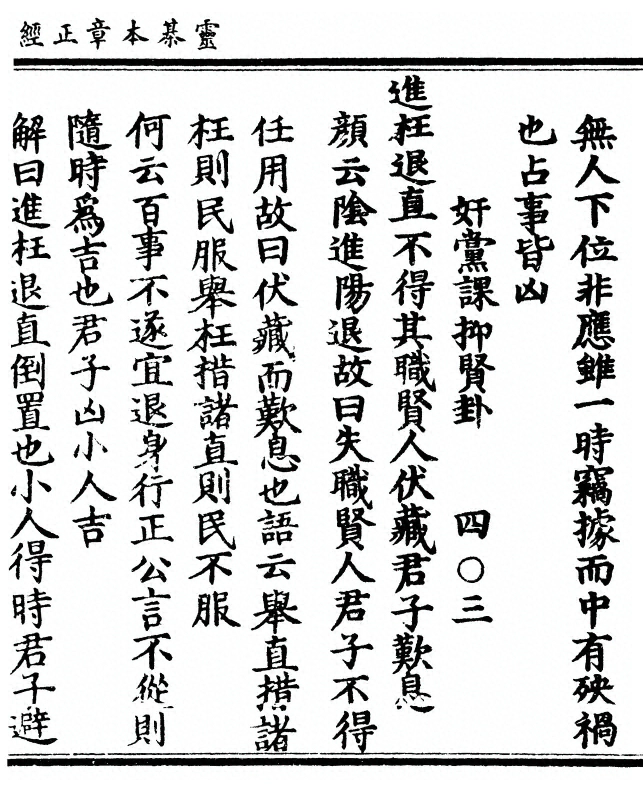 靈棊本章正經
無人下位非應雖一時竊據而中有殃禍
也占事皆凶
奸黨課抑賢卦 四〇三
進枉退直不得其職賢人伏藏君子歎息
顔云陰進陽退故曰失職賢人君子不得
任用故曰伏藏而歎息也語云舉直措諸
枉則民服舉枉措諸直則民不服
何云百事不遂宜退身行正公言不從則
隨時爲吉也君子凶小人吉
解曰進枉退直倒置也小人得時君子避